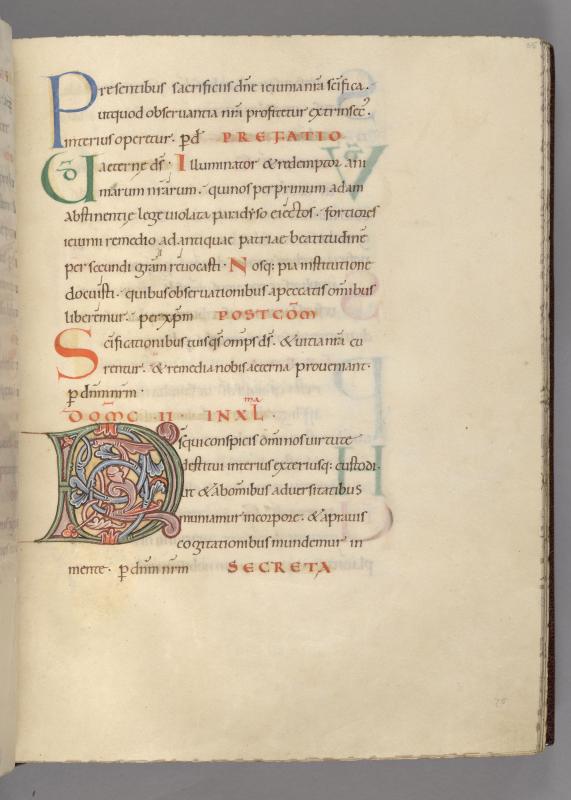 Presentibus sacrificiis dn̄e ieiunia nr̄a sc̄ifica.
ut quod obseruantia nr̄a profitetur extrinsec̄.
interius operetur. p̄ d̄ PREFATIO
VD̄ aeterne ds̄. Illuminator & redemptor ani
marum nr̄arum. qui nos per primum adam
abstinentię lege uiolata paradyso eiectos. fortiores
ieiunii remedio ad antiquae patriae beatitudinē
per secundi gr̄am reuocasti. Nosq; pia institutione
docuisti. quibus obseruationibus a peccatis om̄ibus
liberemur. per xp̄m POSTCŌM
Sc̄ificationibus tuis qs̄ omps̄ ds̄. & uitia nr̄a cu
rentur. & remedia nobis aeterna proueniant.
p̄ dnm̄ nr̄m.
DOMC̄ II IN XL̄ma.
Ds̄ qui conspicis omni nos uirtute
destitui interius exteriusq; custodi.
ut & ab om̄ibus aduersitatibus
muniamur in corpore. & a prauis
cogitationibus mundemur in
mente. p̄ dnm̄ nr̄m SECRETA